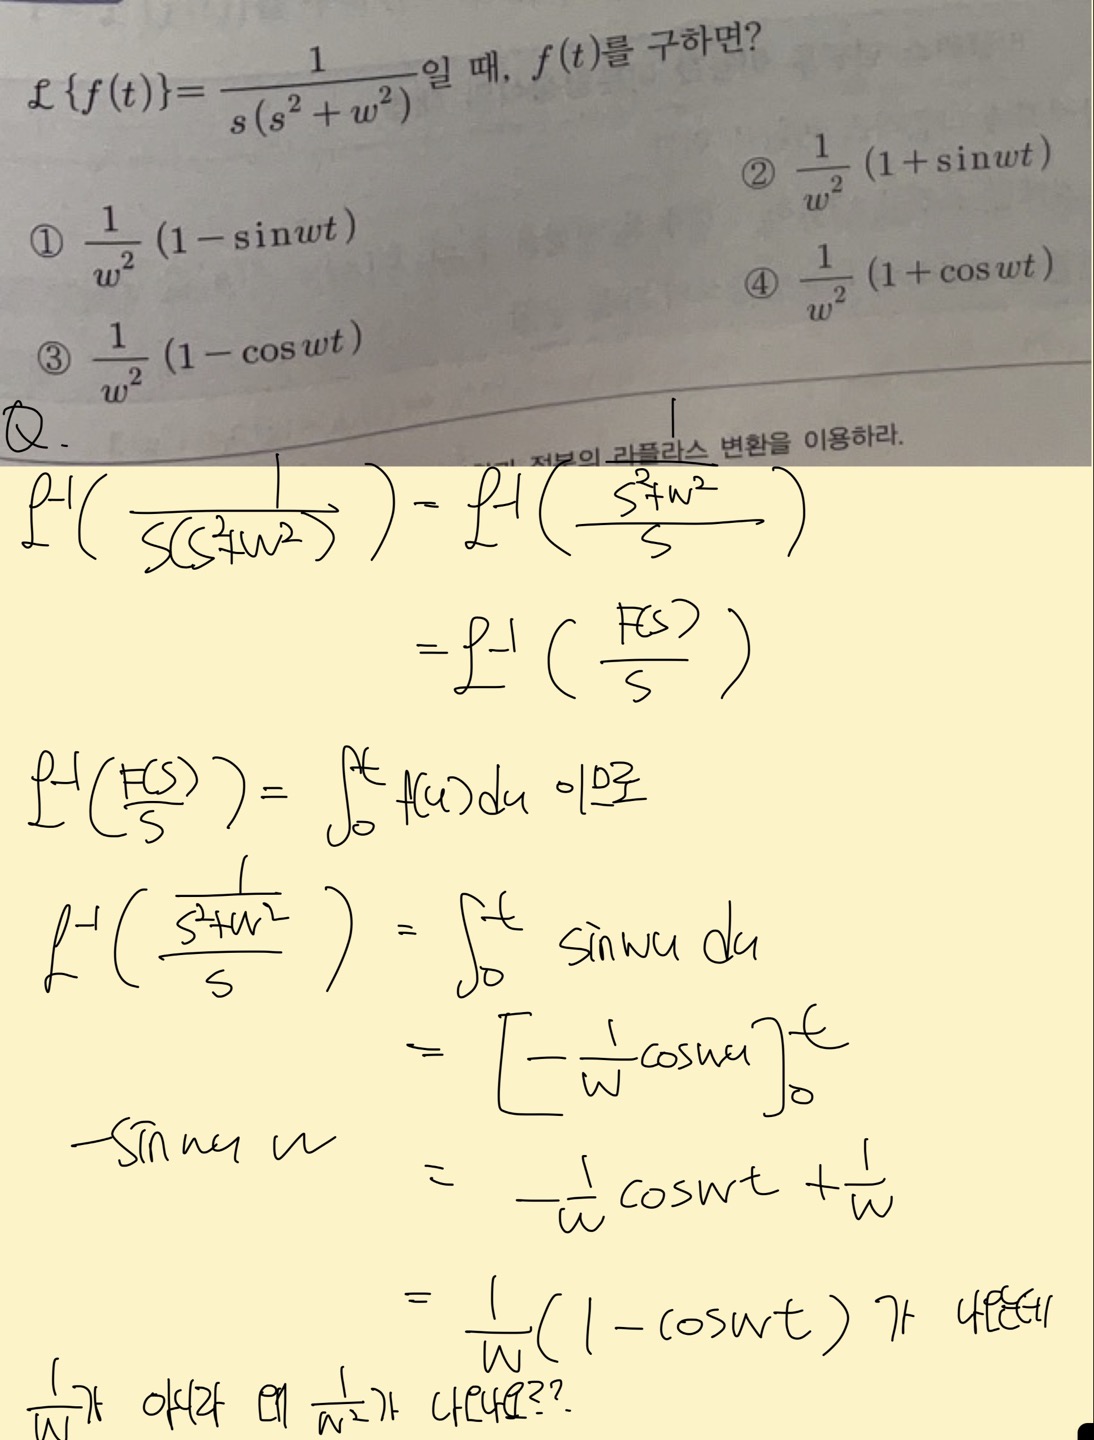 ℒ{f(t)} = 1/(s(s²+w²)) 일 때, f(t)를 구하면?
① 1/w² (1−sinwt)
② 1/w² (1+sinwt)
③ 1/w² (1−coswt)
④ 1/w² (1+coswt)
라플라스 변환을 이용하라.
Q.
ℒ⁻¹(1/(s(s²+w²))) = ℒ⁻¹((1/(s²+w²))/s)
= ℒ⁻¹(F(s)/s)
ℒ⁻¹(F(s)/s) = ∫₀ᵗ f(u)du 이므로
ℒ⁻¹((1/(s²+w²))/s) = ∫₀ᵗ sinwu du
= [−1/w coswu]₀ᵗ
−sinwu w
= −1/w coswt + 1/w
= 1/w (1−coswt) 가 나왔는데
1/w가 아니라 왜 1/w²가 나오나요??